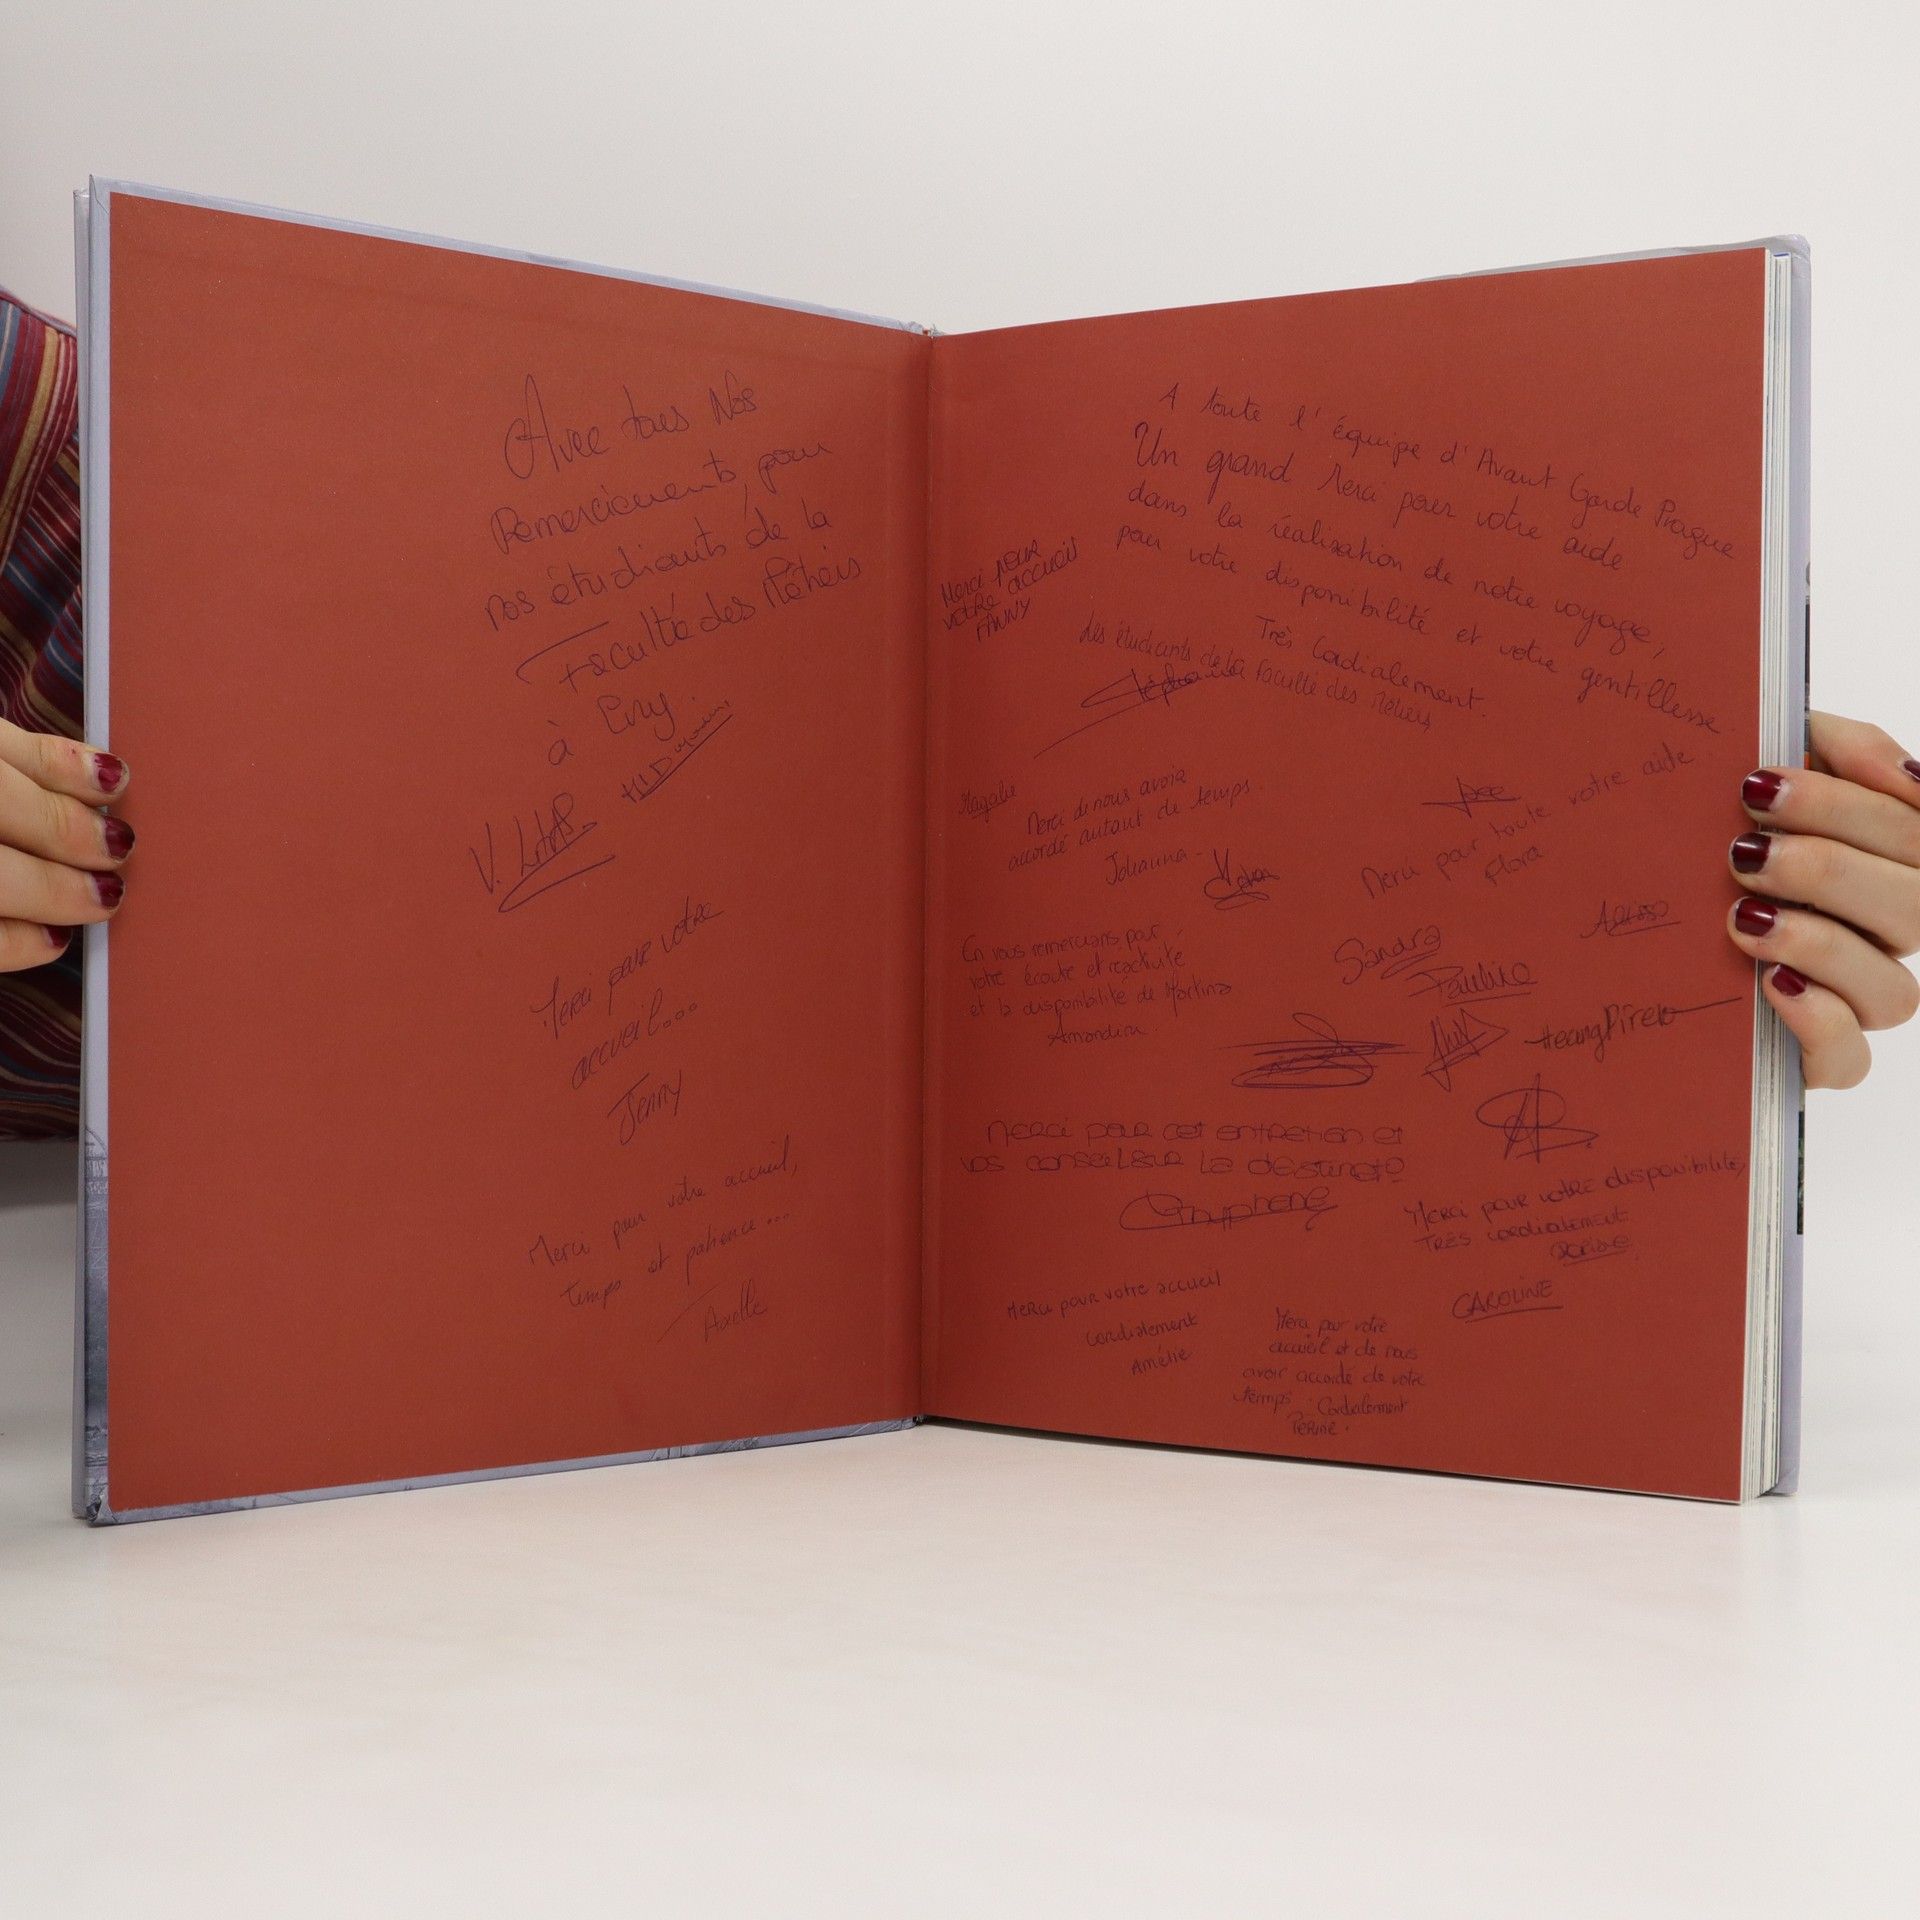 Avec tous Nos
Remerciements, pour
nos étudiants de la
Faculté des Métiers
à Evry.
V.
Merci pour votre
accueil...
Jenny
Merci pour votre accueil,
temps et patience...
Axelle
A toute l'équipe d'Avant Garde Prague
Un grand Merci pour votre aide
dans la réalisation de notre voyage,
pour votre disponibilité et votre gentillesse.
Très Cordialement.
des étudiants de la Faculté des Métiers
Merci pour
votre accueil
FANNY
Magalie
Merci de nous avoir
accordé autant de temps.
Johanna
Merci pour toute votre aide
Flora
En vous remerciant pour
votre écoute et réactivité
et la disponibilité de Martina
Amandine
Sandra
Pauline
Merci pour cet entretien et
vos conseil sur la destinat°
Merci pour votre disponibilité,
Très cordialement
CAROLINE
Merci pour votre accueil
Cordialement
Amélie
Merci pour votre
accueil et de nous
avoir accordé de votre
temps. Cordialement
Perine.